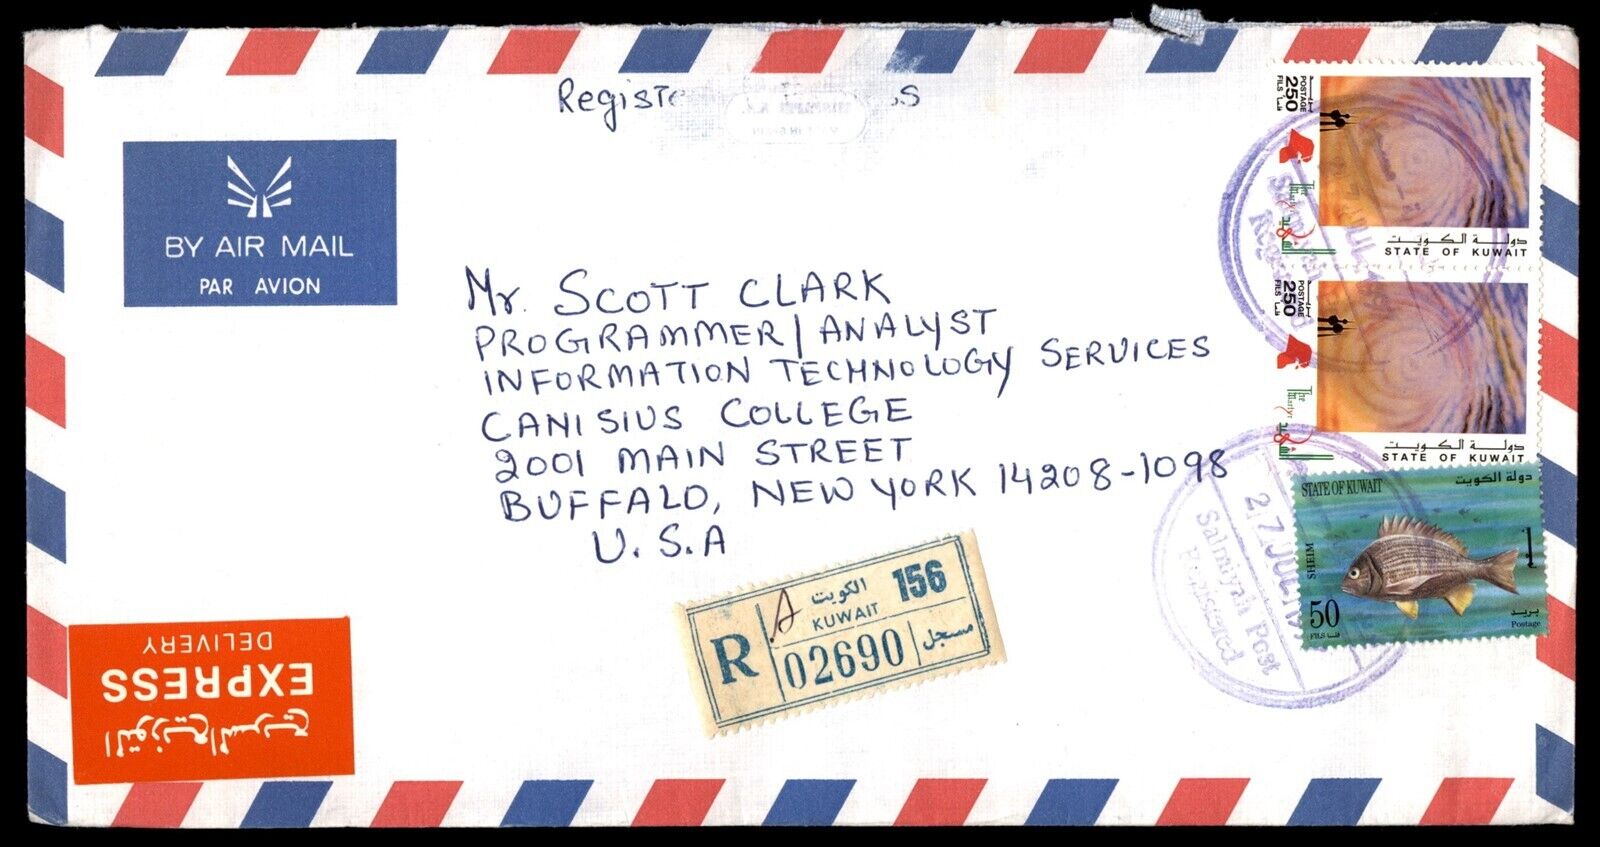 BY AIR MAIL
PAR AVION
Mr. SCOTT CLARK
PROGRAMMER/ANALYST
INFORMATION TECHNOLOGY SERVICES
CANISIUS COLLEGE
2001 MAIN STREET
BUFFALO, NEW YORK 14208-1098
U.S.A
R
A
الكويت
KUWAIT
156
02690
مسجل
التوزيع السريع
EXPRESS
DELIVERY
POSTAGE بريد
250
FILS فلس
The Martyr
دولة الكويت
STATE OF KUWAIT
POSTAGE بريد
250
FILS فلس
The Martyr
دولة الكويت
STATE OF KUWAIT
STATE OF KUWAIT
دولة الكويت
SHEIM
شعم
50
FILS فلس
بريد
Postage
JUL
Salmiyah
27 JUL
Salmiyah Post
Registered